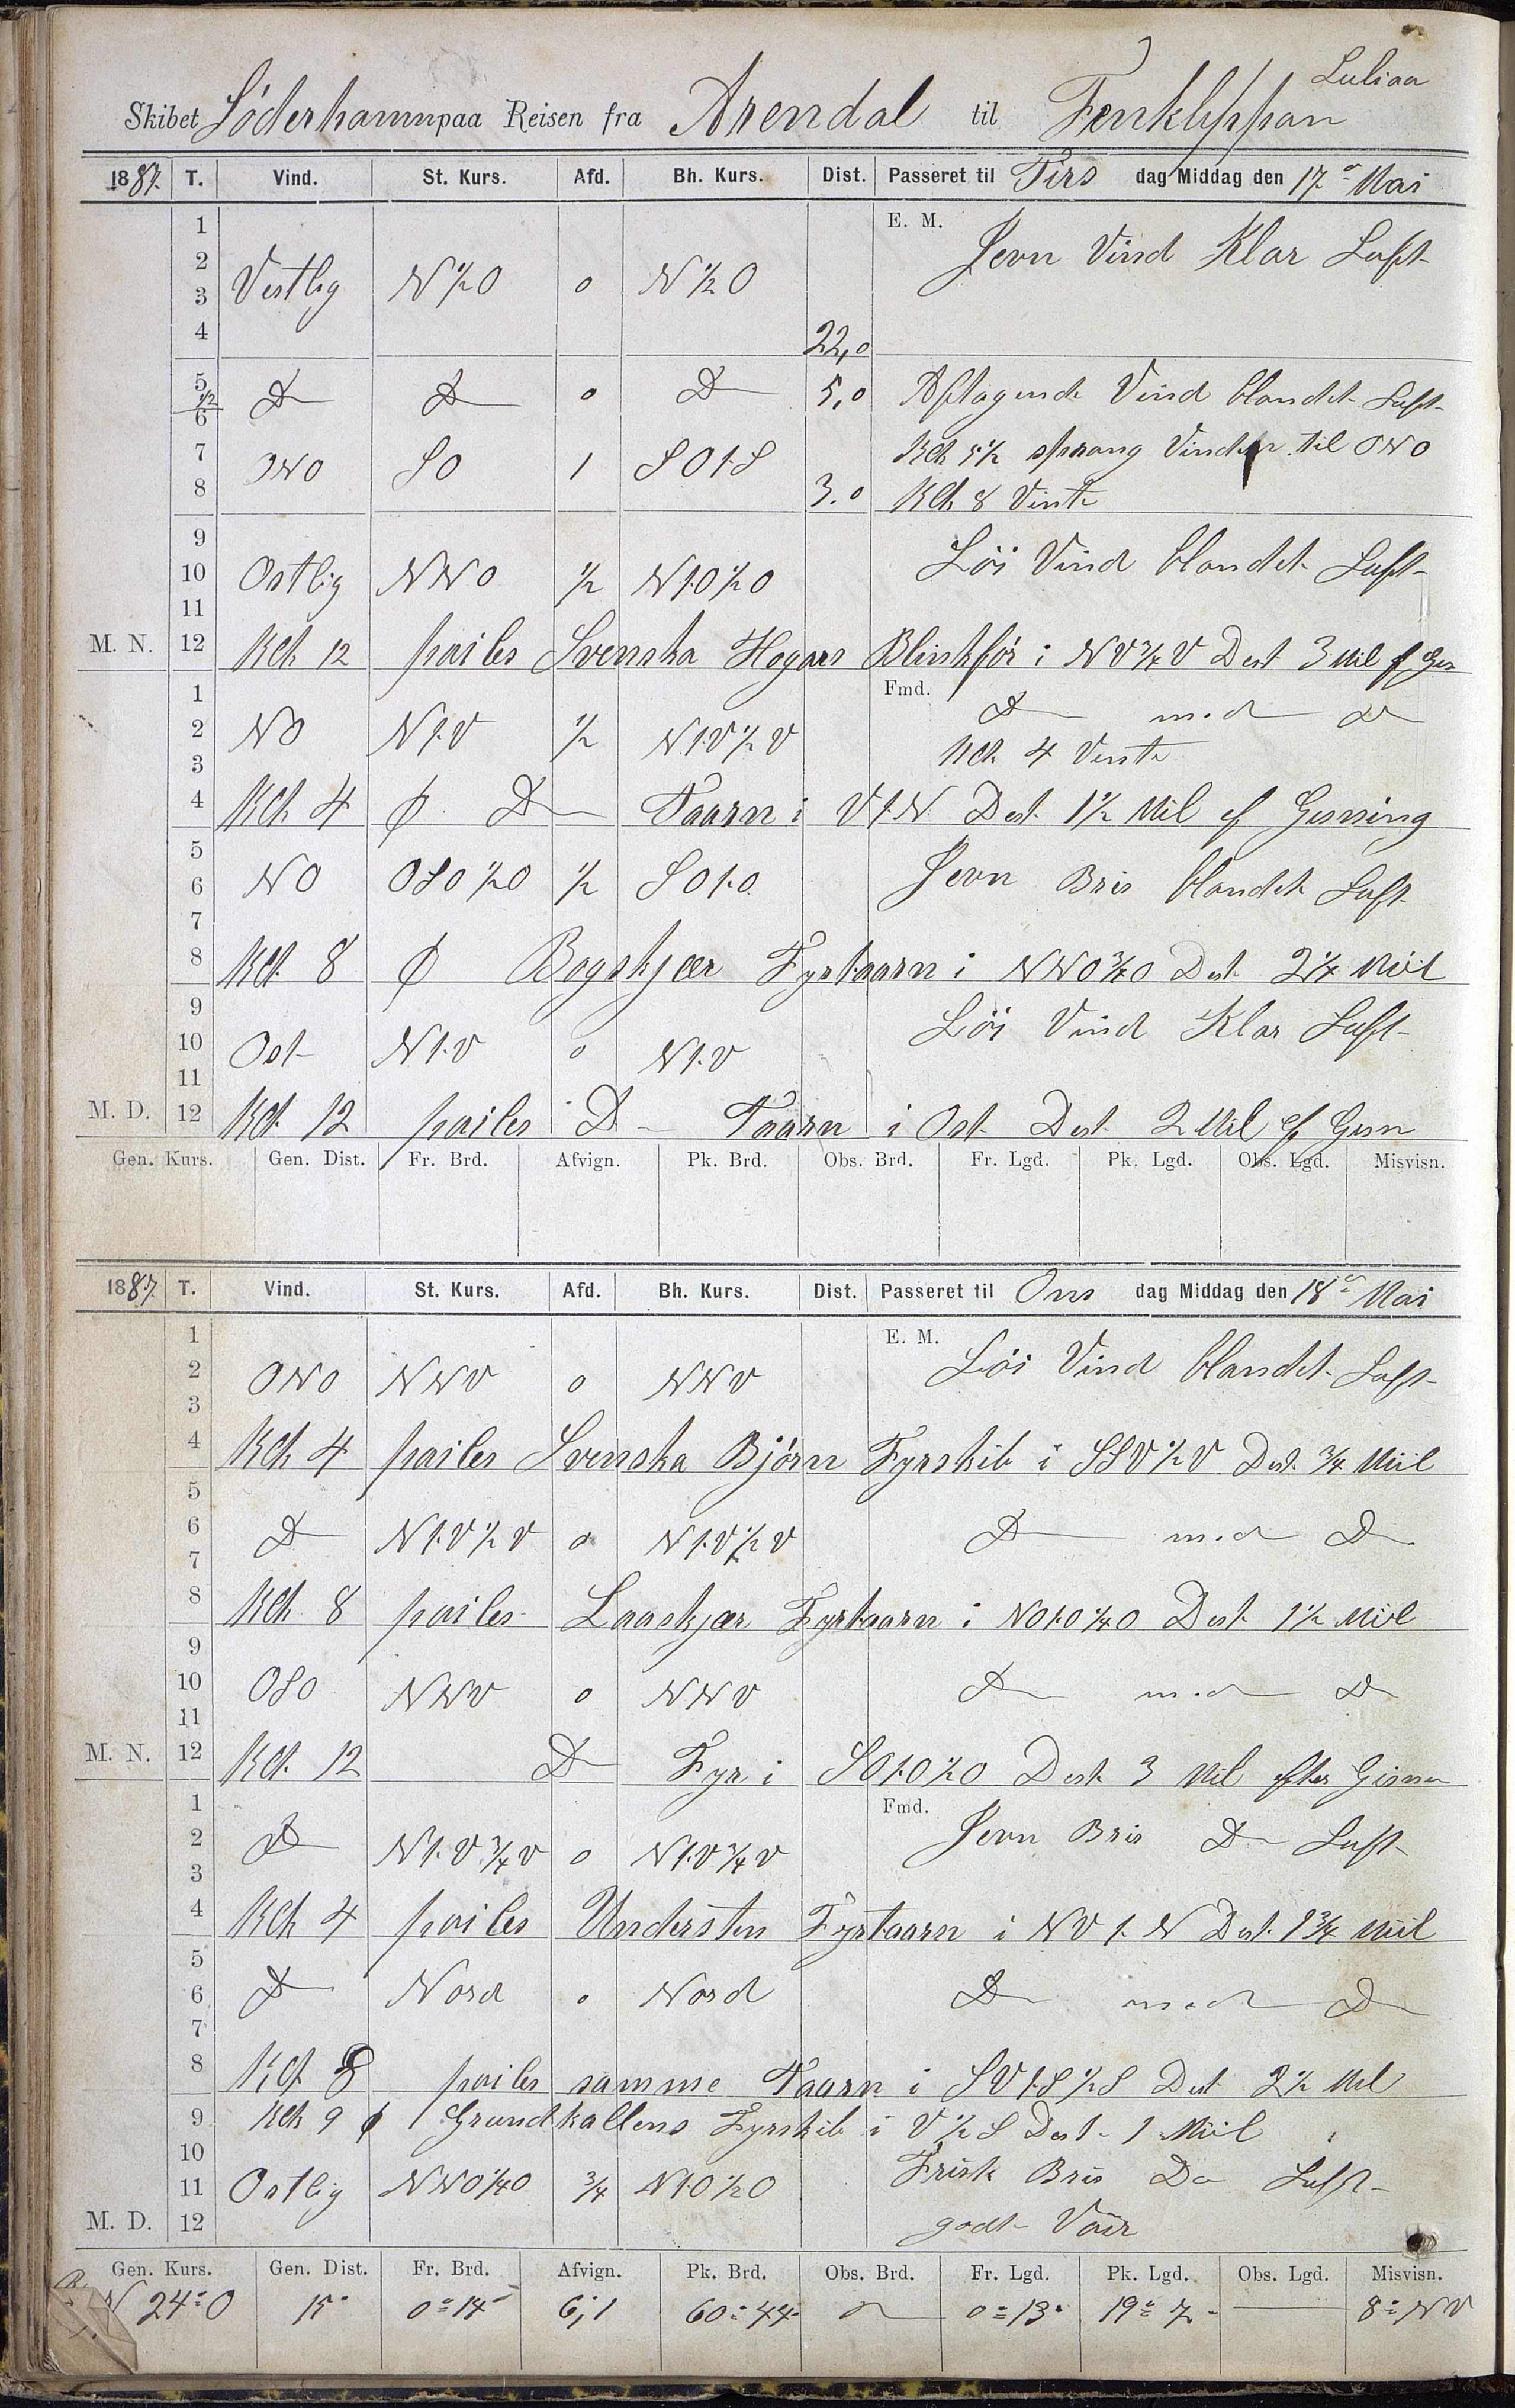 Luliaa
Skibet Söderhamn paa Reisen fra Arendal til Fenklippan
1887. T. Vind. St. Kurs. Afd. Bh. Kurs. Dist. Passeret til Tirs dag Middag den 17de Mai
E. M.
1
2 Jevn Vind Klar Luft
3 Vestlig N½O 0 N½O
4 22,0
5 ½ D D 0 D 5,0 Aftagende Vind blandet Luft
6
7 ONO SO 1 SO t. S Kl. 5½ sprang Vinden til ONO
8 3.0 Kl. 8 Vente
9 Löi Vind blandet Luft
10 Ostlig NNO ½ N t. O ½ O
11
M. N. 12 Kl. 12 peiles Svenska Hogars Blinkför i NV¾V Dest 3 Mil
Fmd.
1 D med D
2 NO N t. V ½ N t. V ½ V
3 Kl. 4 Vente
4 Kl. 4 φ D Taarn i V t. N Dest. 1½ Mil ef Gisning
5
6 NO OSO½O ½ SO t. O Jevn Bris blandet Luft
7
8 Kl. 8 φ Bogskjær Fyrtaarn i NNO¾O Dest. 2¼ Miil
9 Löi Vind Klar Luft
10 Ost N t. V 0 N t. V
11
M. D. 12 Kl. 12 peiles D Taarn i Ost Dest. 2 Mil ef Gisn
Gen. Kurs. Gen. Dist. Fr. Brd. Afvign. Pk. Brd. Obs. Brd. Fr. Lgd. Pk. Lgd. Obs. Lgd. Misvisn.
1887. T. Vind. St. Kurs. Afd. Bh. Kurs. Dist. Passeret til Ons dag Middag den 18de Mai
E. M.
1 Löi Vind blandet Luft
2 ONO NNV 0 NNV
3
4 Kl. 4 peiles Svenska Björn Fyrskib i SSV½V Dest. ¾ Miil
5
6 D N t. V ½ V 0 N t. V ½ V D med D
7
8 Kl. 8 peiles Laaskjær Fyrtaarn i NO t. O ¼ O Dest. 1½ Miil
9
10 OSO NNV 0 NNV D med D
11
M. N. 12 Kl. 12 D Fyr i SO t. O ½ O Dest. 3 Mil efter Gisn
Fmd.
1 Jevn Bris D Luft
2 D N t. V ¾ V 0 N t. V ¾ V
3
4 Kl. 4 peiles Understen Fyrtaarn i NV t. N Dest. 1¾ Miil
5
6 D Nord 0 Nord D med D
7
8 Kl. 8 peiles samme Taarn i SV t. S ½ S Dest 2½ Mil
9 Kl. 9 φ Grundkallens Fyrskib i V½S Dest. 1 Miil
10
11 Ostlig NNO¼O ¾ N t. O ½ O Frisk Bris Do Luft
M. D. 12 godt Vær
Gen. Kurs. Gen. Dist. Fr. Brd. Afvign. Pk. Brd. Obs. Brd. Fr. Lgd. Pk. Lgd. Obs. Lgd. Misvisn.
N 24° O 15 0° 14' 6,1 60° 44' 0° 13' 19° 7' 8° NV